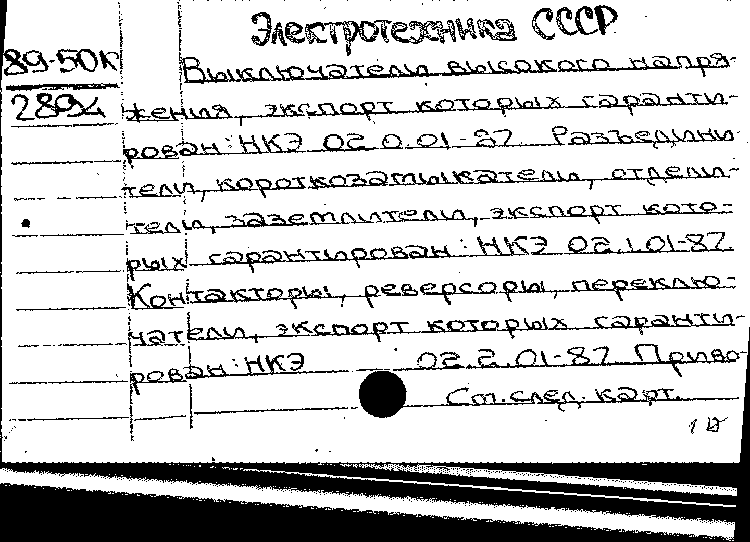 Электротехника СССР
89-50К
2894
Выключатели высокого напря-
жения, экспорт которых гаранти-
рован: НКЭ 02.0.01-87 Разъедини
тели, короткозамыкатели, отдели-
тели, заземлители, экспорт кото-
рых гарантирован: НКЭ 02.1.01-87.
Контакторы, реверсоры, переклю-
чатели, экспорт которых гаранти-
рован: НКЭ 02.2.01-87 Приво-
См. след. карт.